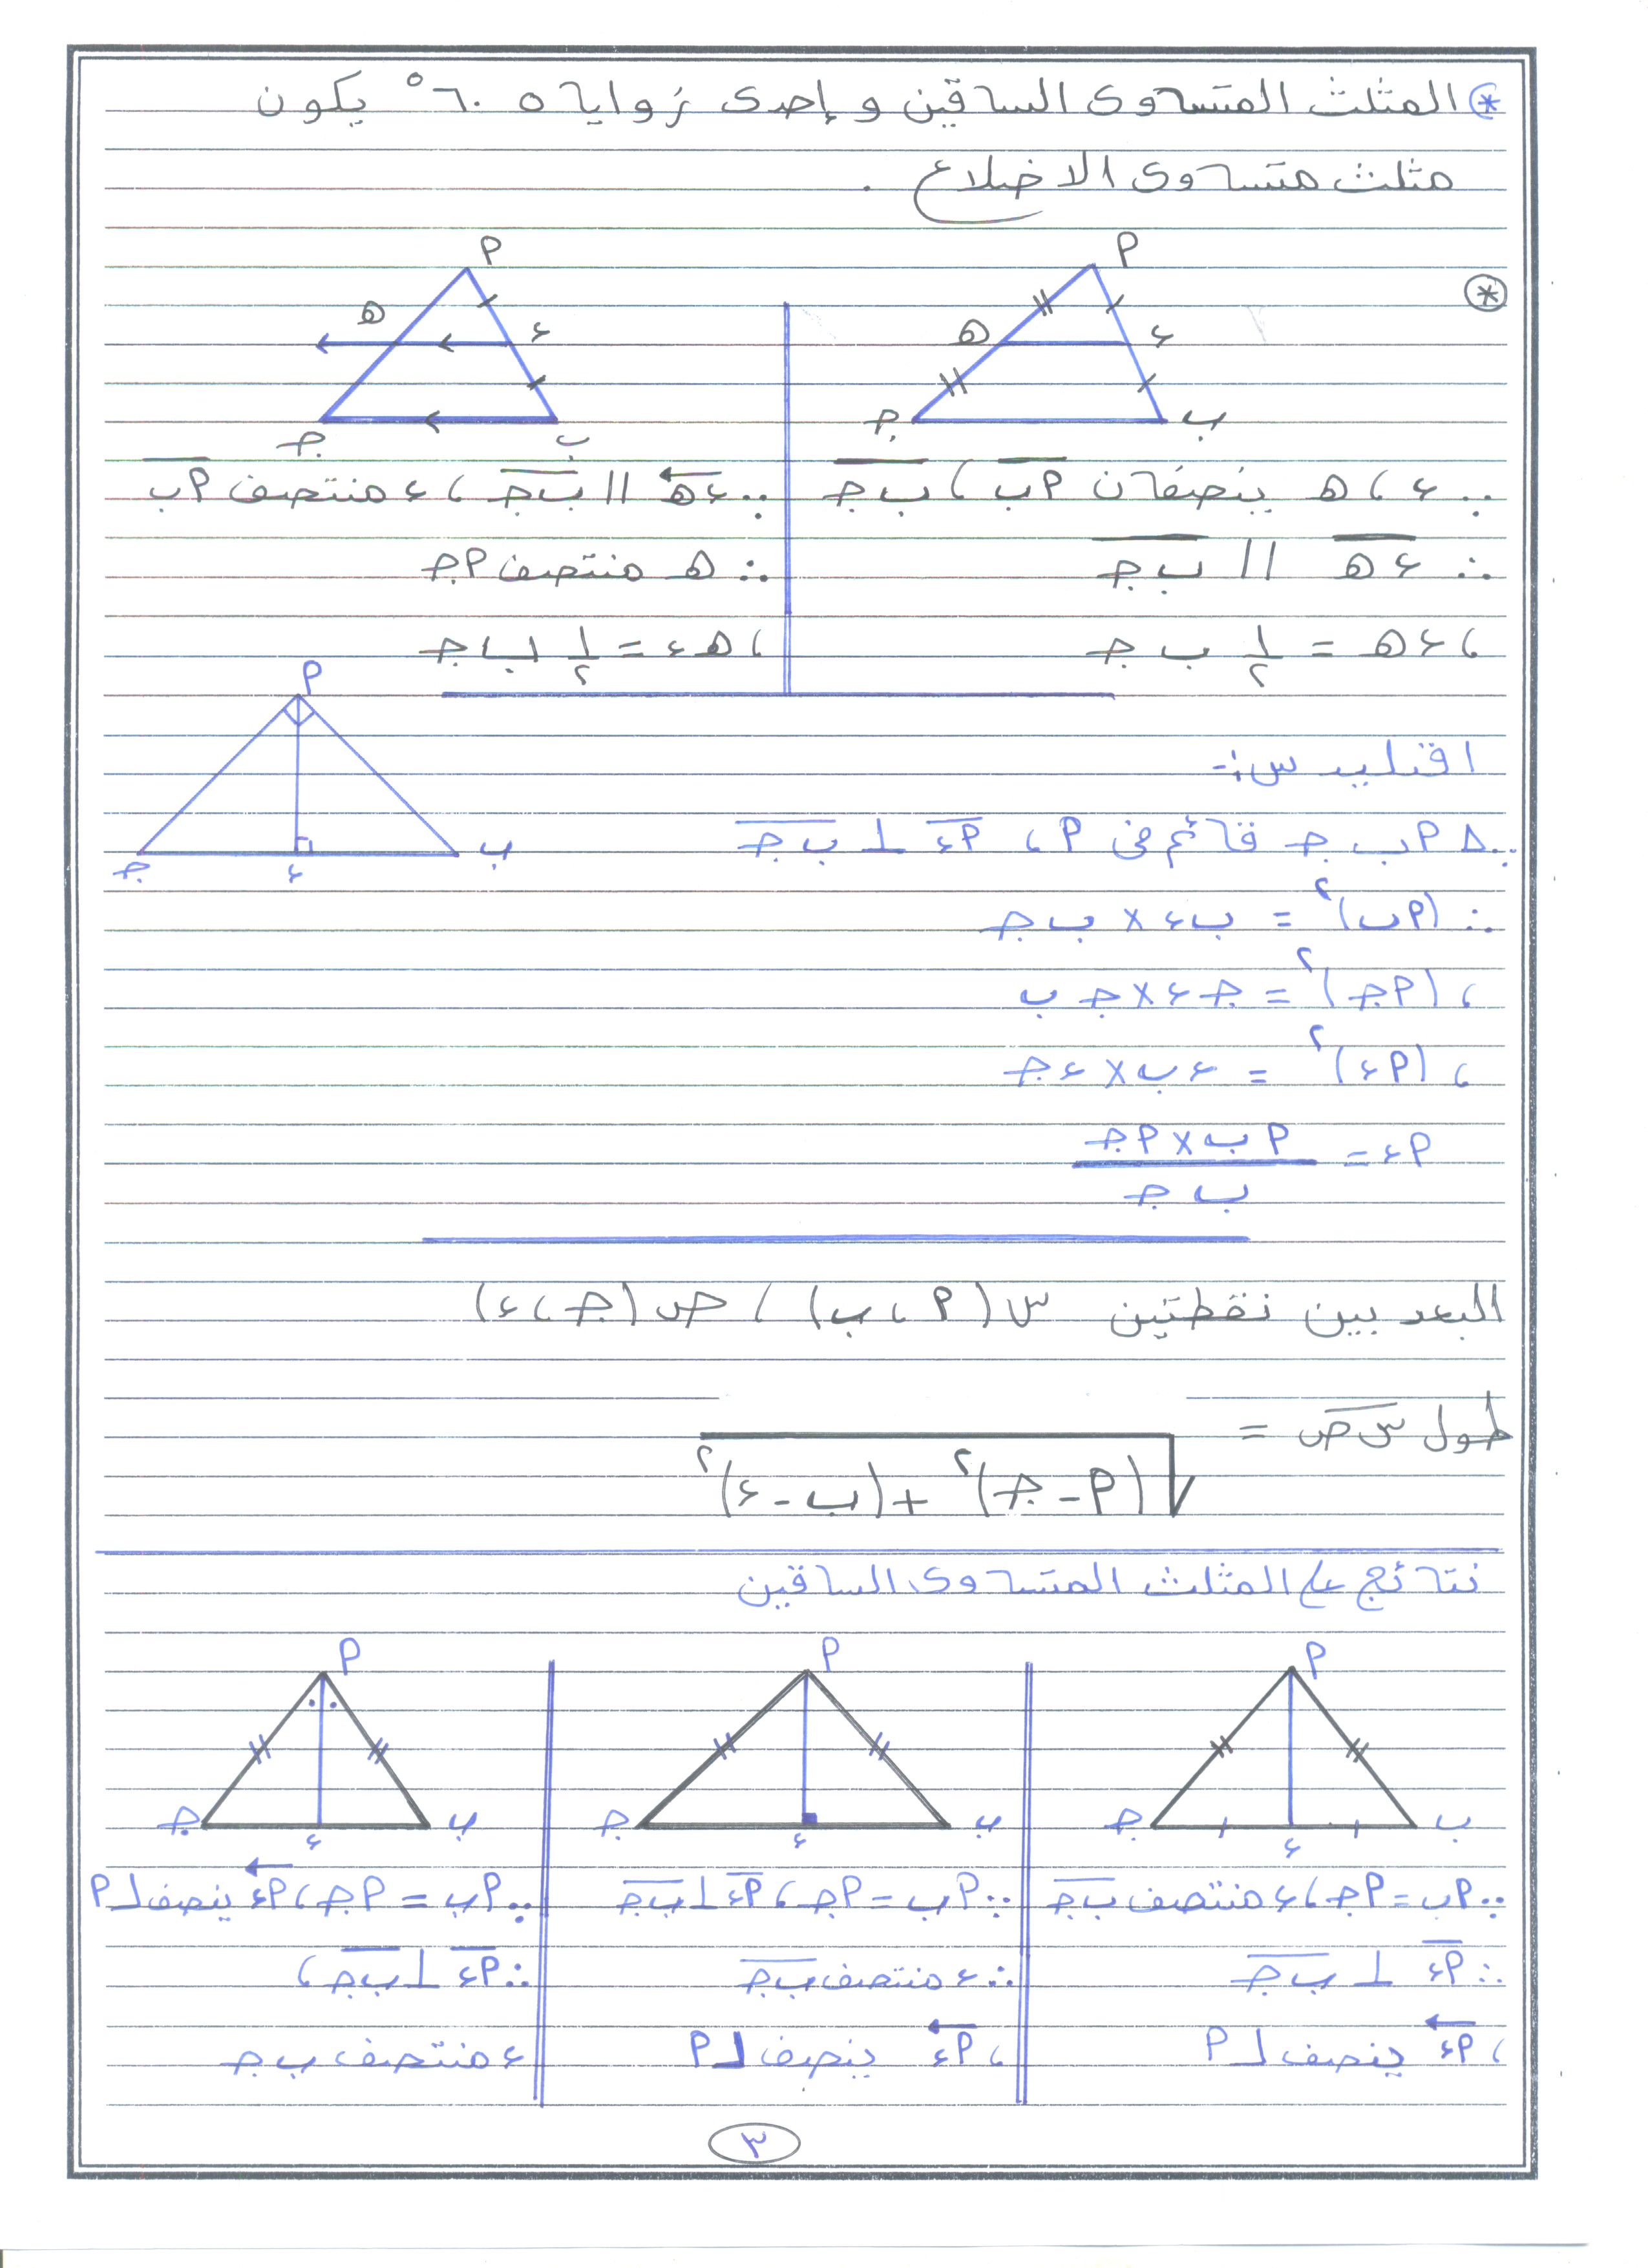 * المثلث المتساوى الساقين و إحدى زواياه ٦٠° يكون
مثلث متساوى الاضلاع .
*
أ
ء
ه
ب
ج
∵ ء ، ه ينصفان أب ، ب ج
∴ ء ه // ب ج
، ء ه = ١/٢ ب ج
أ
ه
ء
ج
ب
∵ ء ه // ب ج ، ء منتصف أب
∴ ه منتصف أج
، ه ء = ١/٢ ب ج
أ
ب
ء
ج
اقليدس :-
∵ Δ أ ب ج قائم فى أ ، أء ⊥ ب ج
∴ (أب)٢ = ب ء × ب ج
، (أج)٢ = ج ء × ج ب
، (أء)٢ = ء ب × ء ج
أء = أ ب × أ ج / ب ج
البعد بين نقطتين س (أ ، ب) ، ص (ج ، ء)
طول س ص =
√(أ - ج)٢ + (ب - ء)٢
نتائج على المثلث المتساوى الساقين
أ
ب
ء
ج
∵ أب = أج ، ء منتصف ب ج
∴ أء ⊥ ب ج
، أء ينصف ∠ أ
أ
ب
ء
ج
∵ أب = أج ، أء ⊥ ب ج
∴ ء منتصف ب ج
، أء ينصف ∠ أ
أ
ب
ء
ج
∵ أب = أج ، أء ينصف ∠ أ
∴ أء ⊥ ب ج ،
ء منتصف ب ج
٣